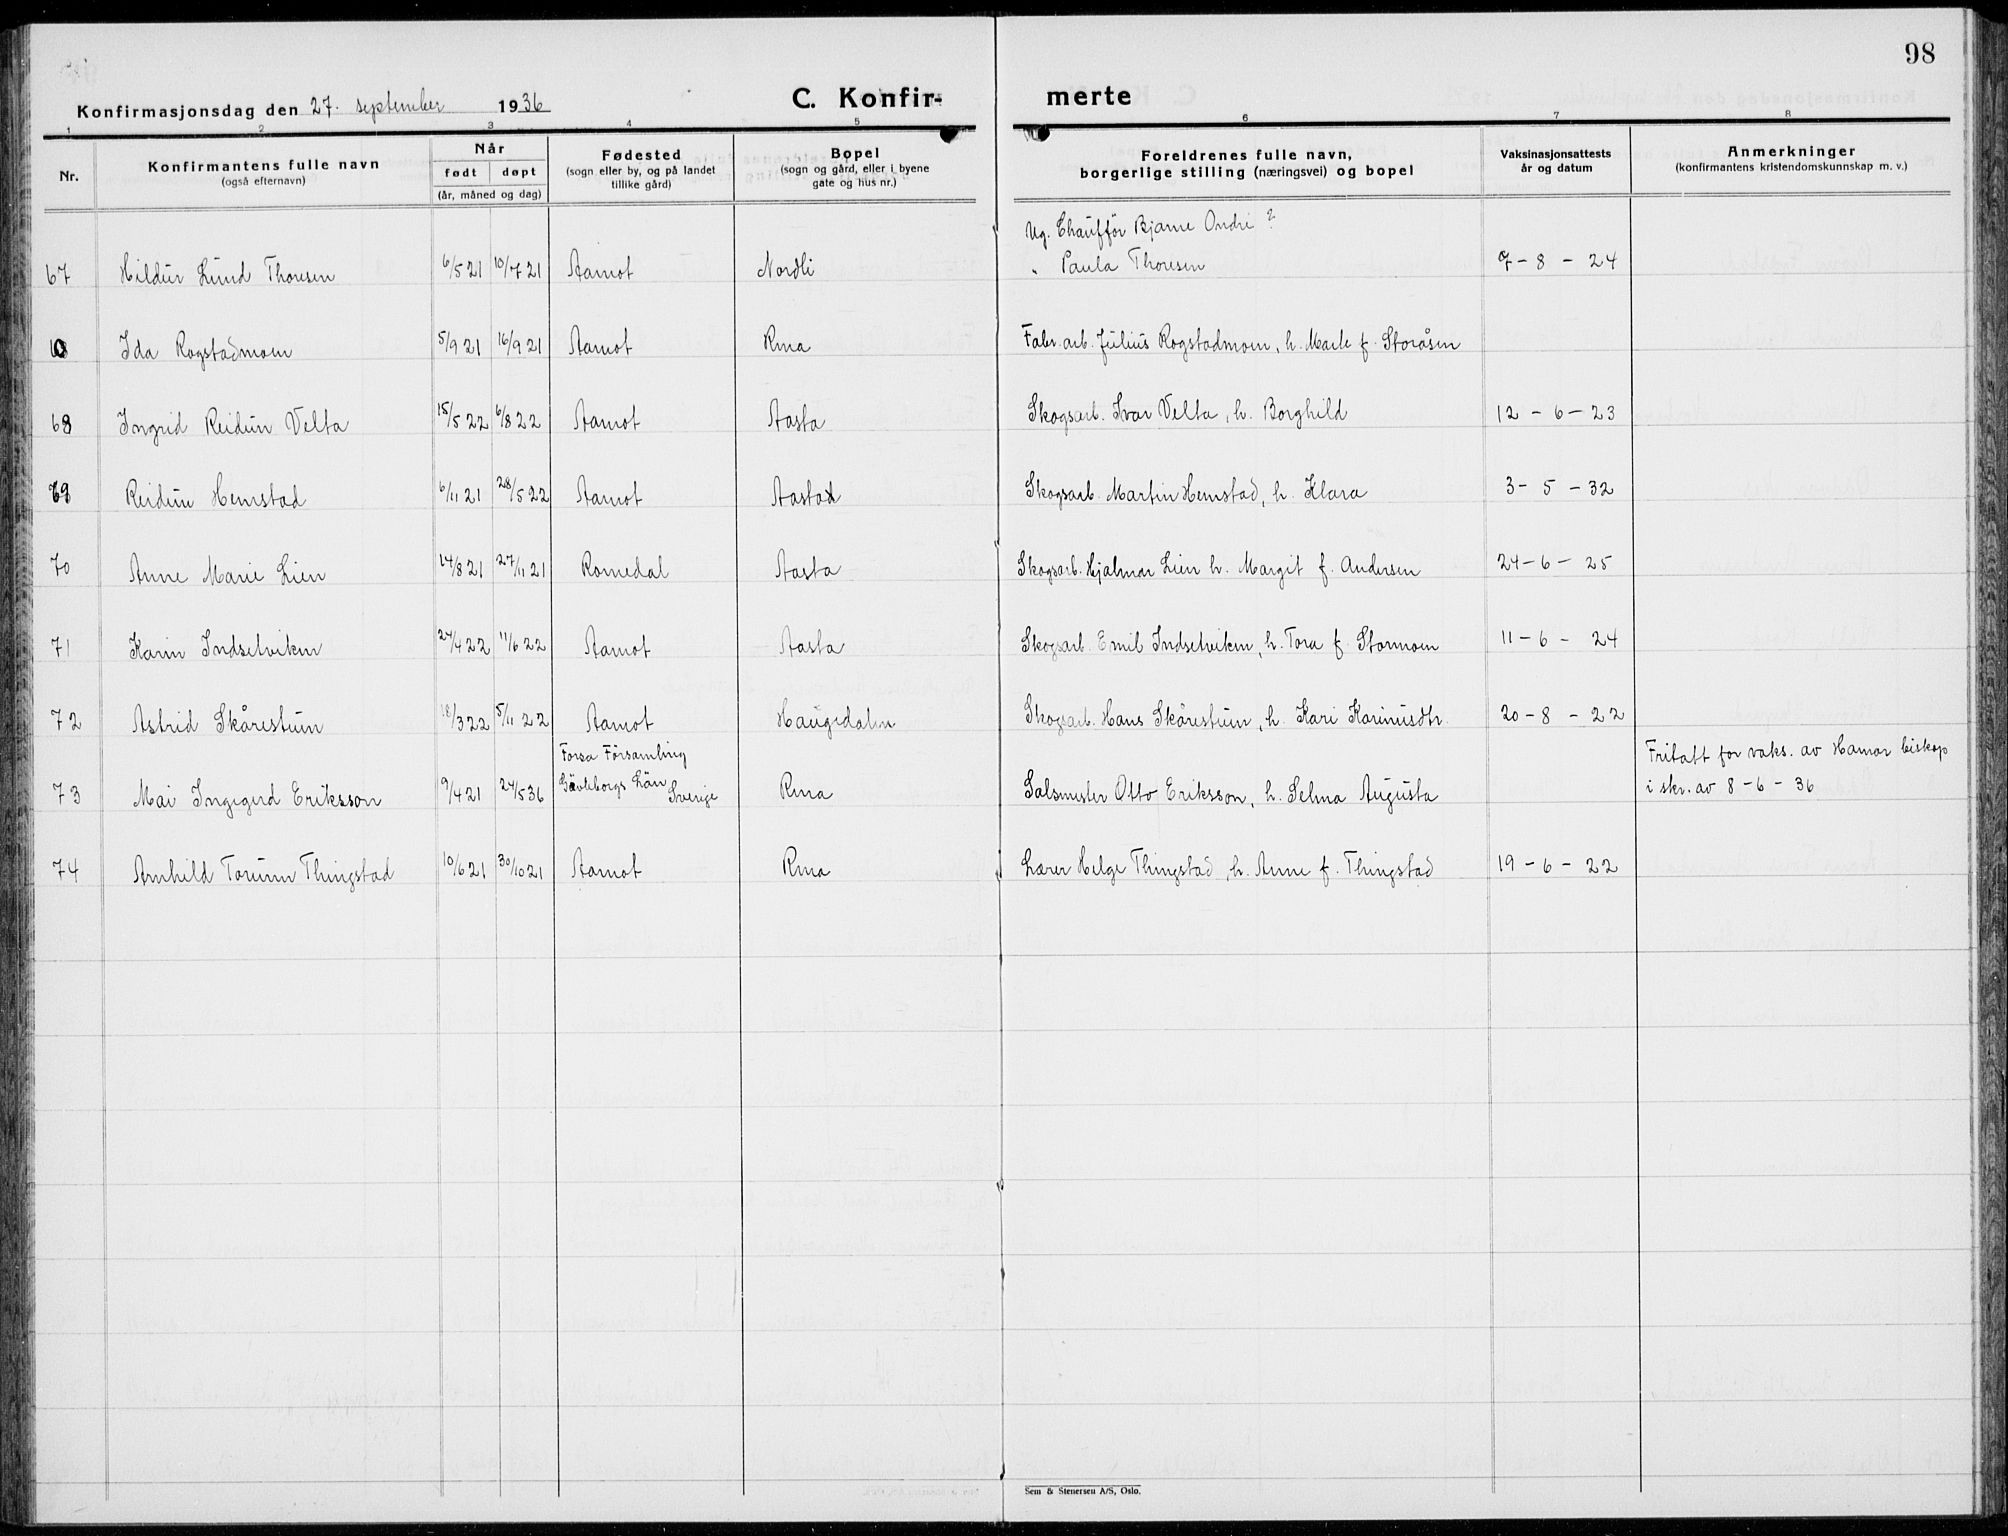 98
Konfirmasjonsdag den 27. september 1936
C. Konfir-
merte
1 2 3 4 5 6 7 8
Nr.
Konfirmantens fulle navn
(også efternavn)
Når
født døpt
(år, måned og dag)
Fødested
(sogn eller by, og på landet
tillike gård)
Bopel
(sogn og gård, eller i byene
gate og hus nr.)
Foreldrenes fulle navn,
borgerlige stilling (næringsvei) og bopel
Vaksinasjonsattests
år og datum
Anmerkninger
(konfirmantens kristendomskunnskap m. v.)
Ug. Chauffør Bjarne Ondri ?
67 Hildur Lund Thoresen 6/5 21 10/7 21 Aamot Nordli " Paula Thoresen 7 - 8 - 24
0 Ida Rogstadmoen 5/9 21 16/9 21 Aamot Rena Fabr. arb. Julius Rogstadmoen, h. Marie f. Storåsen
68 Ingrid Reidun Velta 15/5 22 6/8 22 Aamot Aasta Skogsarb. Ivar Velta, h. Borghild 12 - 6 - 23
69 Reidun Hemstad 6/11 21 28/5 22 Aamot Aasta Skogsarb. Martin Hemstad, h. Klara 3 - 5 - 32
70 Anne Marie Lien 14/8 21 27/11 21 Romedal Aasta Skogsarb. Hjalmar Lien h. Margit f. Andersen 24 - 6 - 25
71 Karin Indsetviken 24/4 22 11/6 22 Aamot Aasta Skogsarb. Emil Indsetviken, h. Tora f. Stormoen 11 - 6 - 24
72 Astrid Skårestuen 18/3 22 5/11 22 Aamot Haugedalen Skogsarb. Hans Skårestuen, h. Kari Karinusdtr. 20 - 8 - 22
Forsa Församling
Fritatt for vaks. av Hamar biskop
73 Mai Ingegerd Eriksson 9/4 21 24/5 36 Gävleborgs Län Sverige Rena Salsmester Otto Eriksson, h. Selma Augusta i skr. av 8 - 6 - 36
74 Arnhild Torunn Thingstad 10/6 21 30/10 21 Aamot Rena Lærer Helge Thingstad, h. Anne f. Thingstad 19 - 6 - 22
Sem & Stenersen A/S, Oslo.